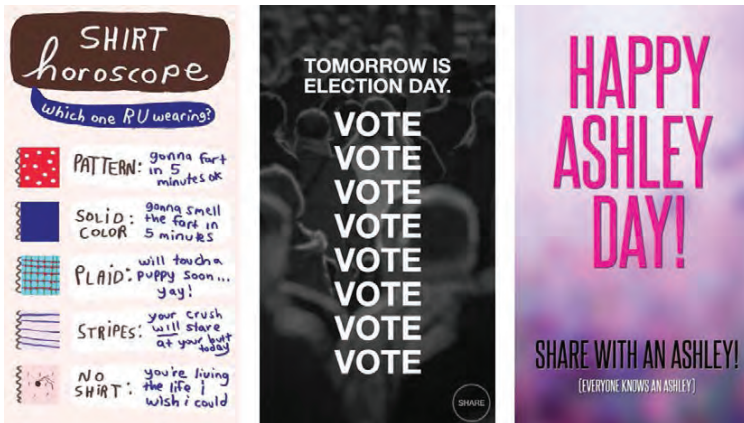 SHIRT
horoscope
which one RU wearing?
PATTERN: gonna fart
in 5
minutes ok
SOLID
COLOR: gonna smell
the fart in
5 minutes
PLAID: will touch a
puppy soon...
yay!
STRIPES: your crush
will stare
at your butt
today
NO
SHIRT: you're living
the life i
wish i could
TOMORROW IS
ELECTION DAY.
VOTE
VOTE
VOTE
VOTE
VOTE
VOTE
VOTE
VOTE
SHARE
HAPPY
ASHLEY
DAY!
SHARE WITH AN ASHLEY!
(EVERYONE KNOWS AN ASHLEY)